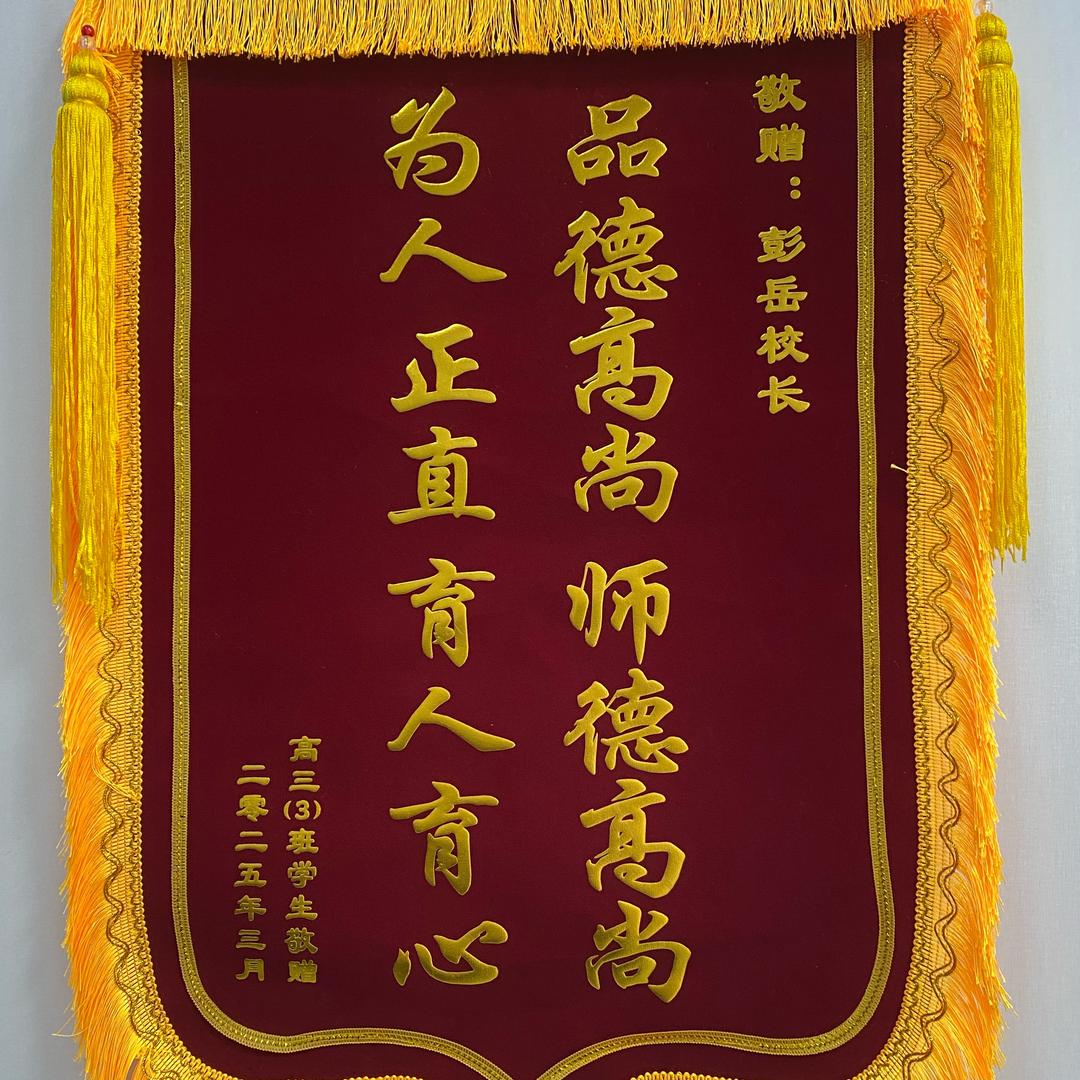 敬赠：彭岳校长
品德高尚 师德高尚
为人正直 育人育心
高三(3)班学生敬赠
二零二五年三月